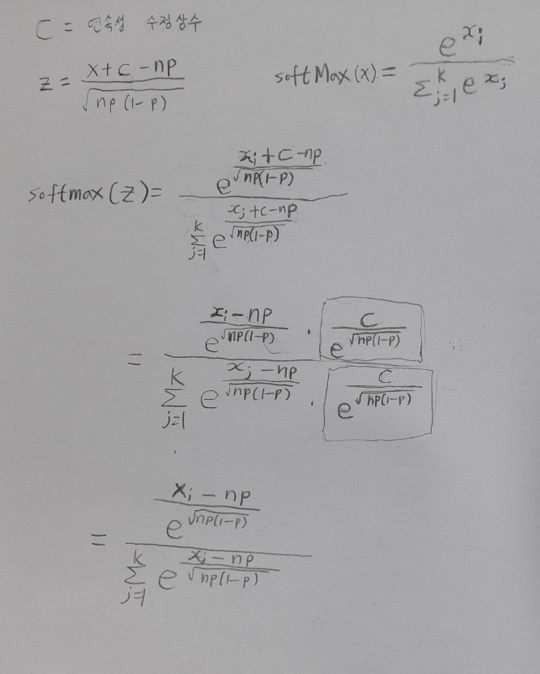 C = 연속성 수정상수
z = (x + c - np) / √(np(1-p))
softMax(x) = e^(x_i) / Σ_{j=1}^k e^(x_j)
softmax(z) = e^((x_i + c - np) / √(np(1-p))) / Σ_{j=1}^k e^((x_j + c - np) / √(np(1-p)))
= e^((x_i - np) / √(np(1-p))) · e^(c / √(np(1-p))) / Σ_{j=1}^k e^((x_j - np) / √(np(1-p))) · e^(c / √(np(1-p)))
= e^((x_i - np) / √(np(1-p))) / Σ_{j=1}^k e^((x_i - np) / √(np(1-p)))